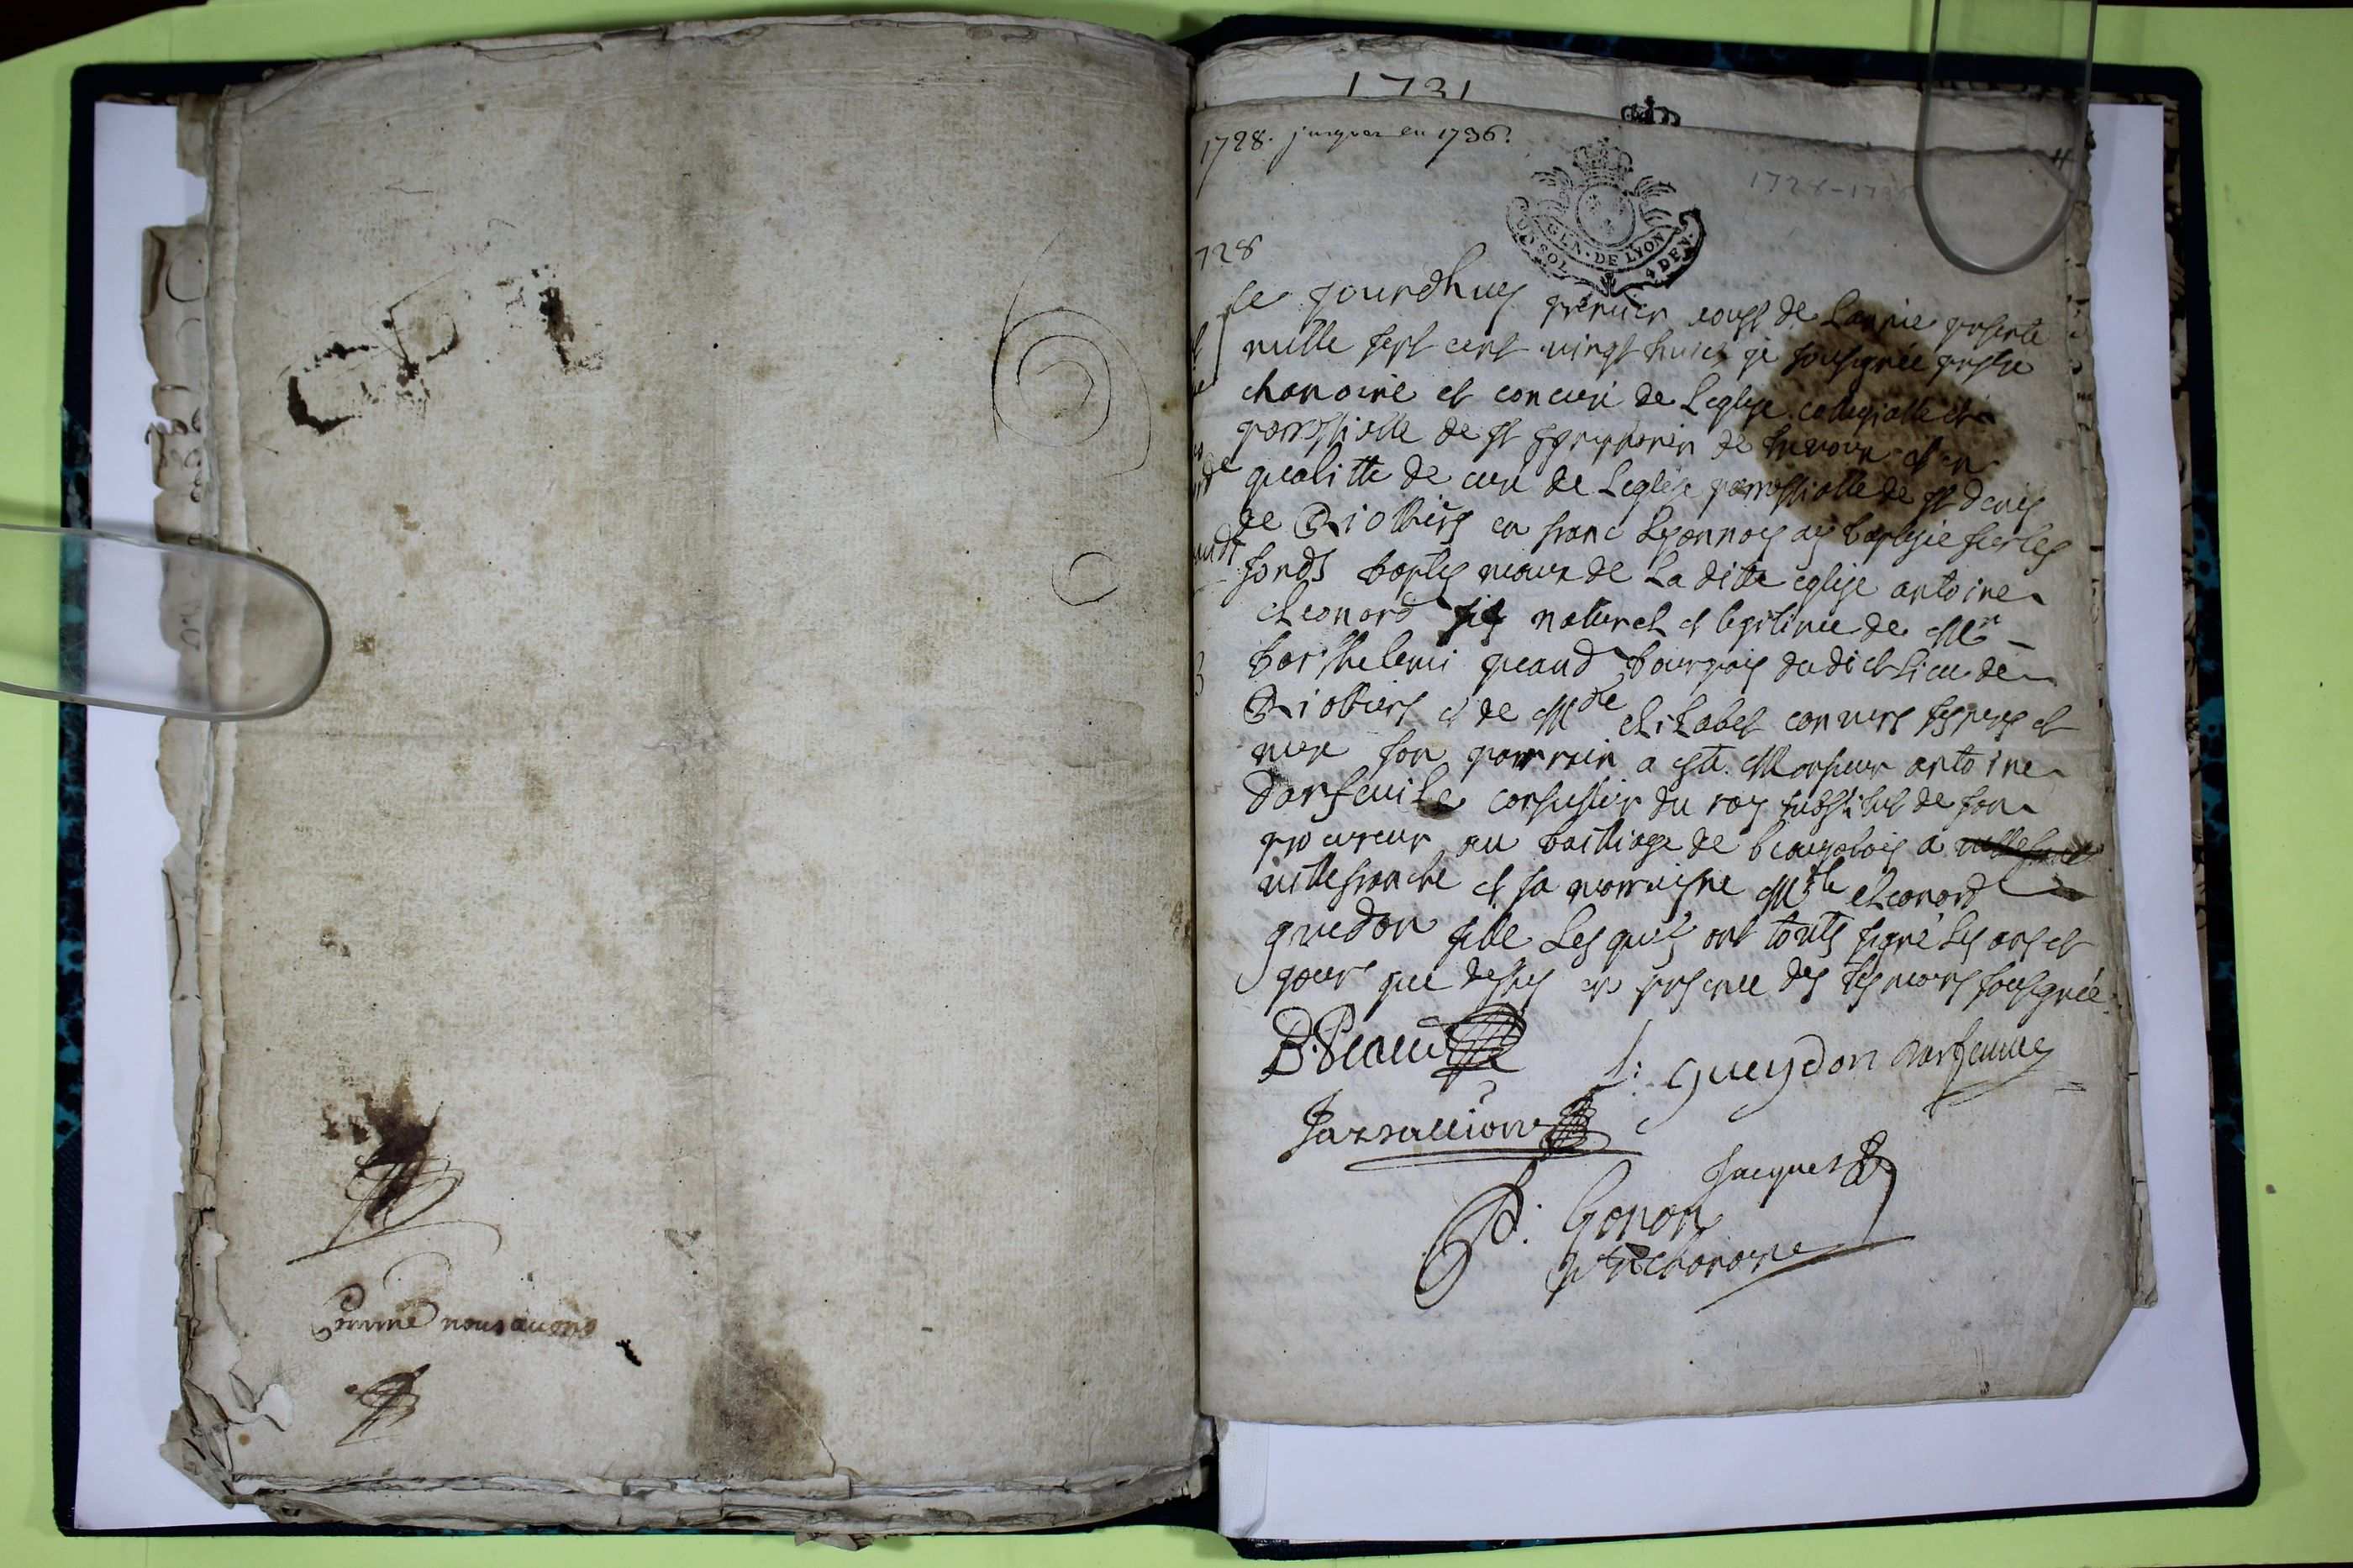 Comme nous avons
1731
1728. jusques en 1736.
1728-173
GEN. DE LYON
UN SOL 4 DEN.
728
ce jourdhuy premier aoust de Lannée presente
mille sept cent vingt huict je sousignée prestre
chanoine et concuré de Leglise collegialle et
parroissialle de st symphorien de trevoux et en
qualitte de curé de Leglise parroissialle de st denis
de Riottiers en franc Lyonnois ay baptisé sur les
fonds baptismaux de La ditte eglise antoine
eleonord fils naturel et legitime de Mr
barthelemi peaud bourgois dudict lieu de
Riottiers et de Mdle elizabet convers ses pere et
mere son parrain a esté Monsieur antoine
darfeuile conseiller du roy substitut de son
procureur au bailliage de beaujolois a villefranche
villefranche et sa marraine Mlle eleonord
guedon fille Lesquels ont touts signé les ans et
jours que dessus en presence des tesmoins sousignée
B. Peaud
L: Gueydon darfeuille
Jacques
P: Gonon
ptre chanoine